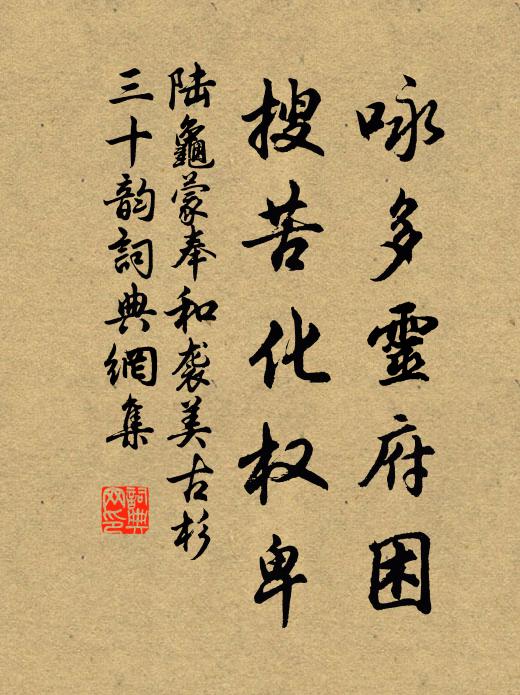 咏多靈府困
搜苦化权卑
陆龜蒙奉和袭美古杉
三十韵詞典網集
詞典网印